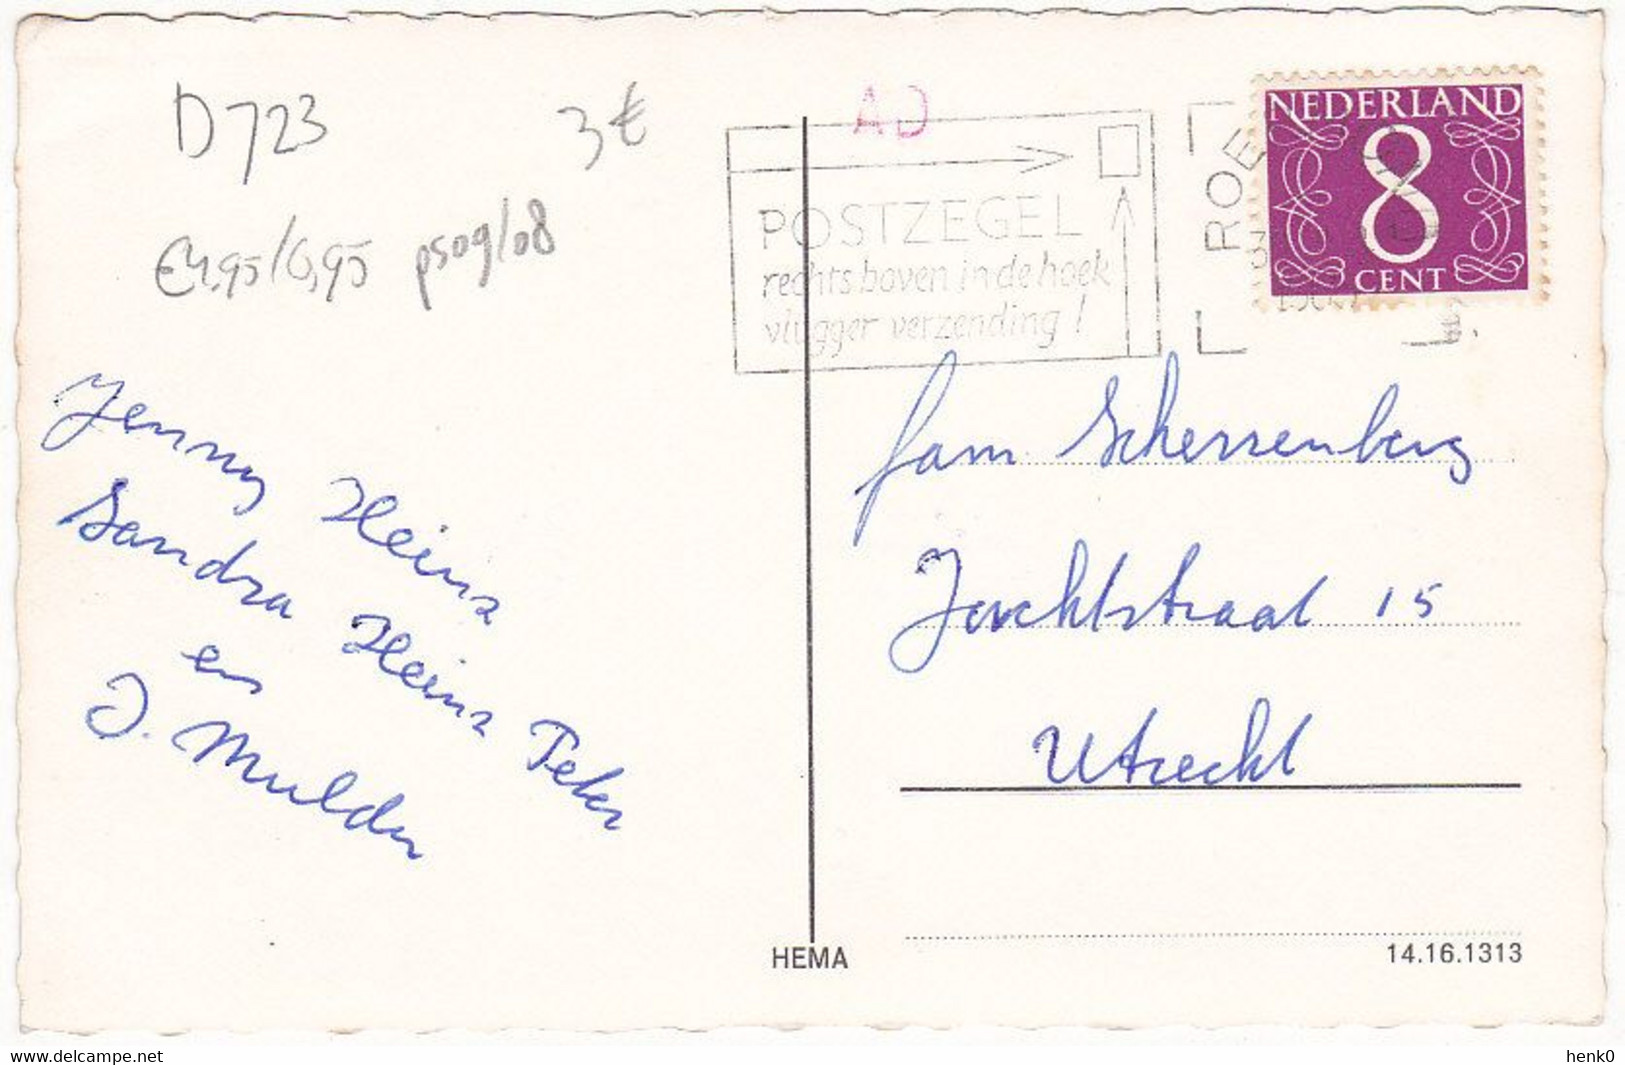 D723
3€
€4,95/6,95 ps09/08
AD
POSTZEGEL
rechts boven in de hoek
vlugger verzending!
ROE
NEDERLAND
8
CENT
Jenny Heinz
Sandra Heinz Peter
en
J. Mulder
fam Scherrenberg
Jachtstraat 15
Utrecht
HEMA
14.16.1313
www.delcampe.net
henk0